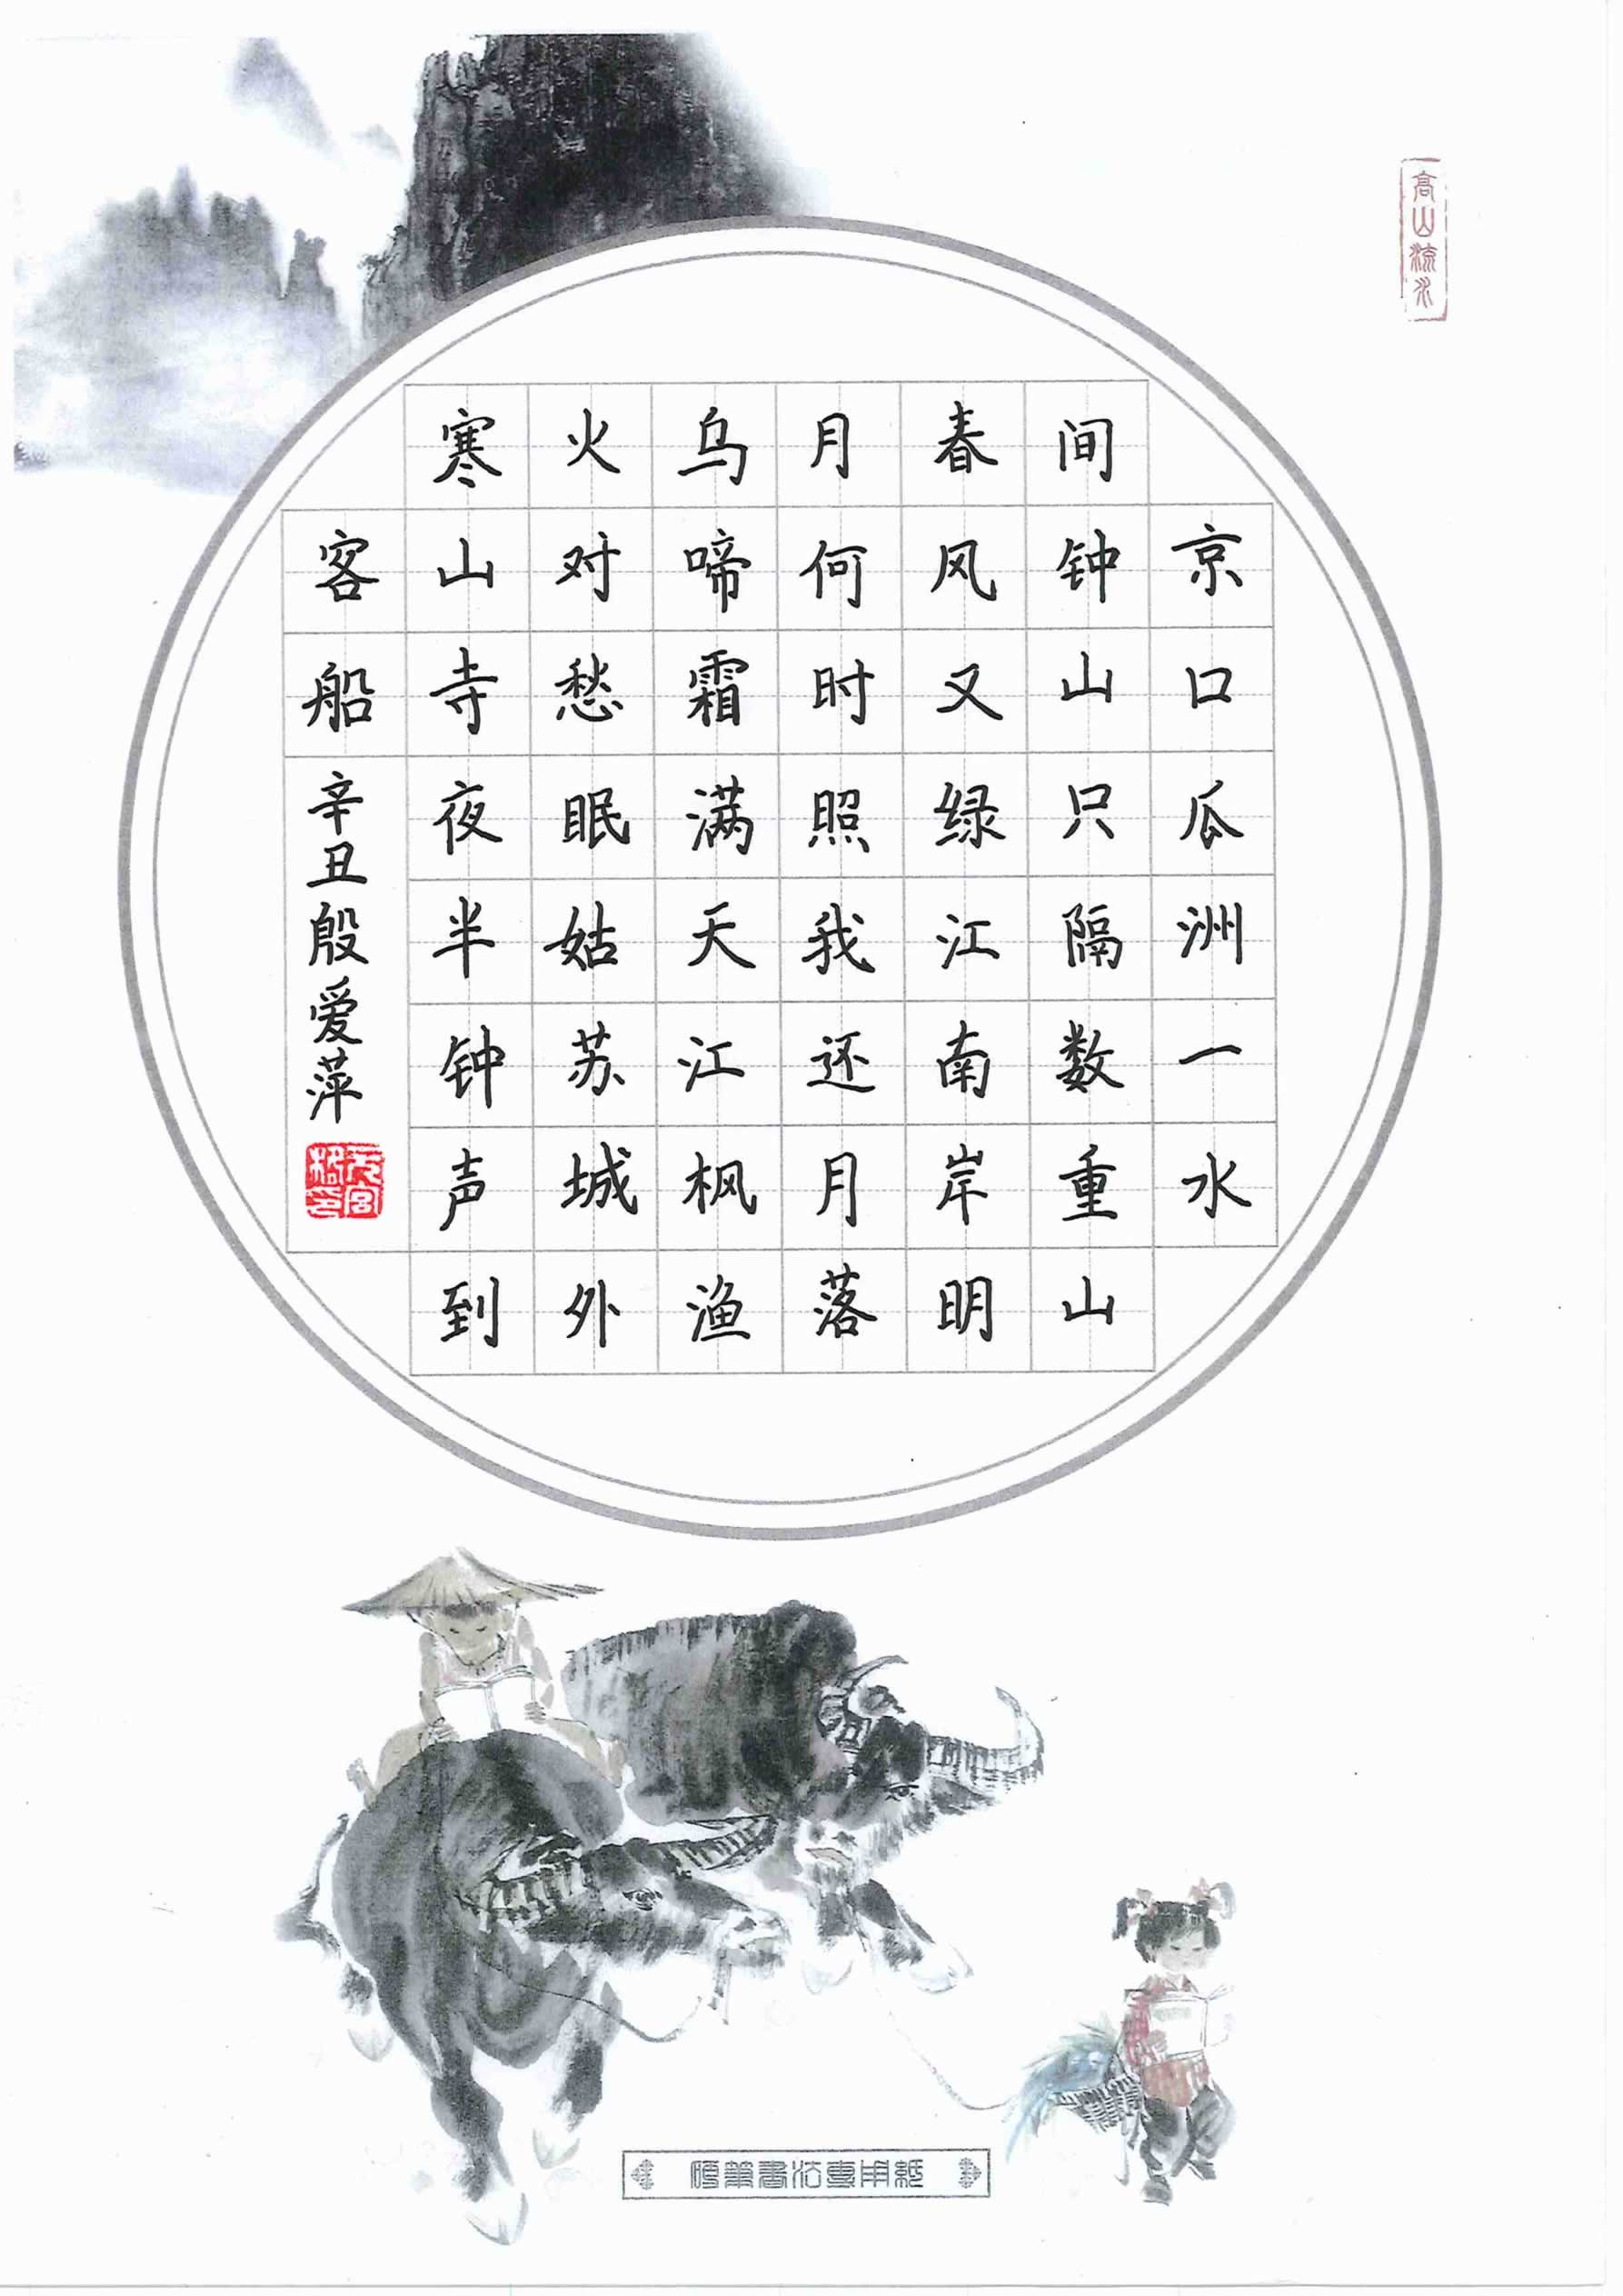 高山流水
京口瓜洲一水
间钟山只隔数重山
春风又绿江南岸明
月何时照我还月落
乌啼霜满天江枫渔
火对愁眠姑苏城外
寒山寺夜半钟声到
客船
辛丑殷爱萍
硬笔书法专用纸